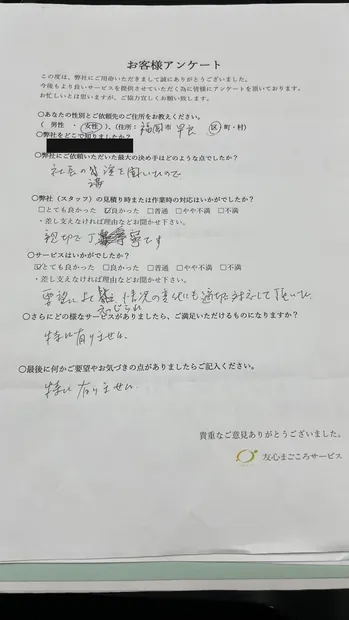 お客様アンケート
この度は、弊社にご用命いただきまして誠にありがとうございました。
今後もより良いサービスを提供させていただく為に皆様にアンケートを頂いております。
お忙しいとは思いますが、ご協力宜しくお願い致します。
○あなたの性別とご依頼先のご住所をお教えください。
( 男性 ・ 女性 )、(住所: 福岡市 早良 区・町・村)
○弊社をどこで知りましたか?
○弊社にご依頼いただいた最大の決め手はどのような点でしたか?
社長の講演を聞いたので
○弊社(スタッフ)の見積り時または作業時の対応はいかがでしたか?
□とても良かった ☑良かった □普通 □やや不満 □不満
・差し支えなければ理由などお聞かせ下さい。
親切で丁寧です
○サービスはいかがでしたか?
☑とても良かった □良かった □普通 □やや不満 □不満
・差し支えなければ理由などお聞かせ下さい。
要望に 状況の変化にも適切に対応して頂いた
○さらにどの様なサービスがありましたら、ご満足いただけるものになりますか?
特に有りません
○最後に何かご要望やお気づきの点がありましたらご記入ください。
特に有りません
貴重なご意見ありがとうございました。
友心まごころサービス